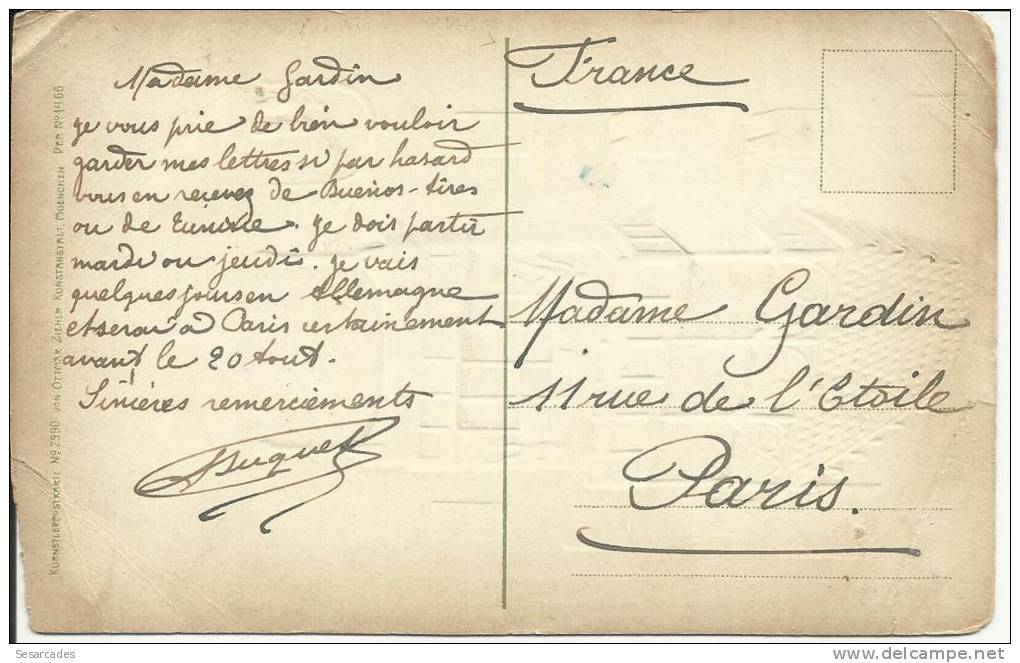 Madame Gardin
je vous prie de bien vouloir
garder mes lettres si par hasard
vous en recevez de Buenos-Aires
ou de Tunisie. Je dois partir
mardi ou jeudi. je vais
quelques jours en Allemagne
et serai à Paris certainement
avant le 20 Aout.
Sincères remerciements
France
Madame Gardin
11 rue de l'Etoile
Paris.
KUENSTLERPOSTKARTE No. 2990 VON OTTMAR ZIEHER KUNSTANSTALT, MUENCHEN DEP. No 1466
Sesarcades
delcampe.net